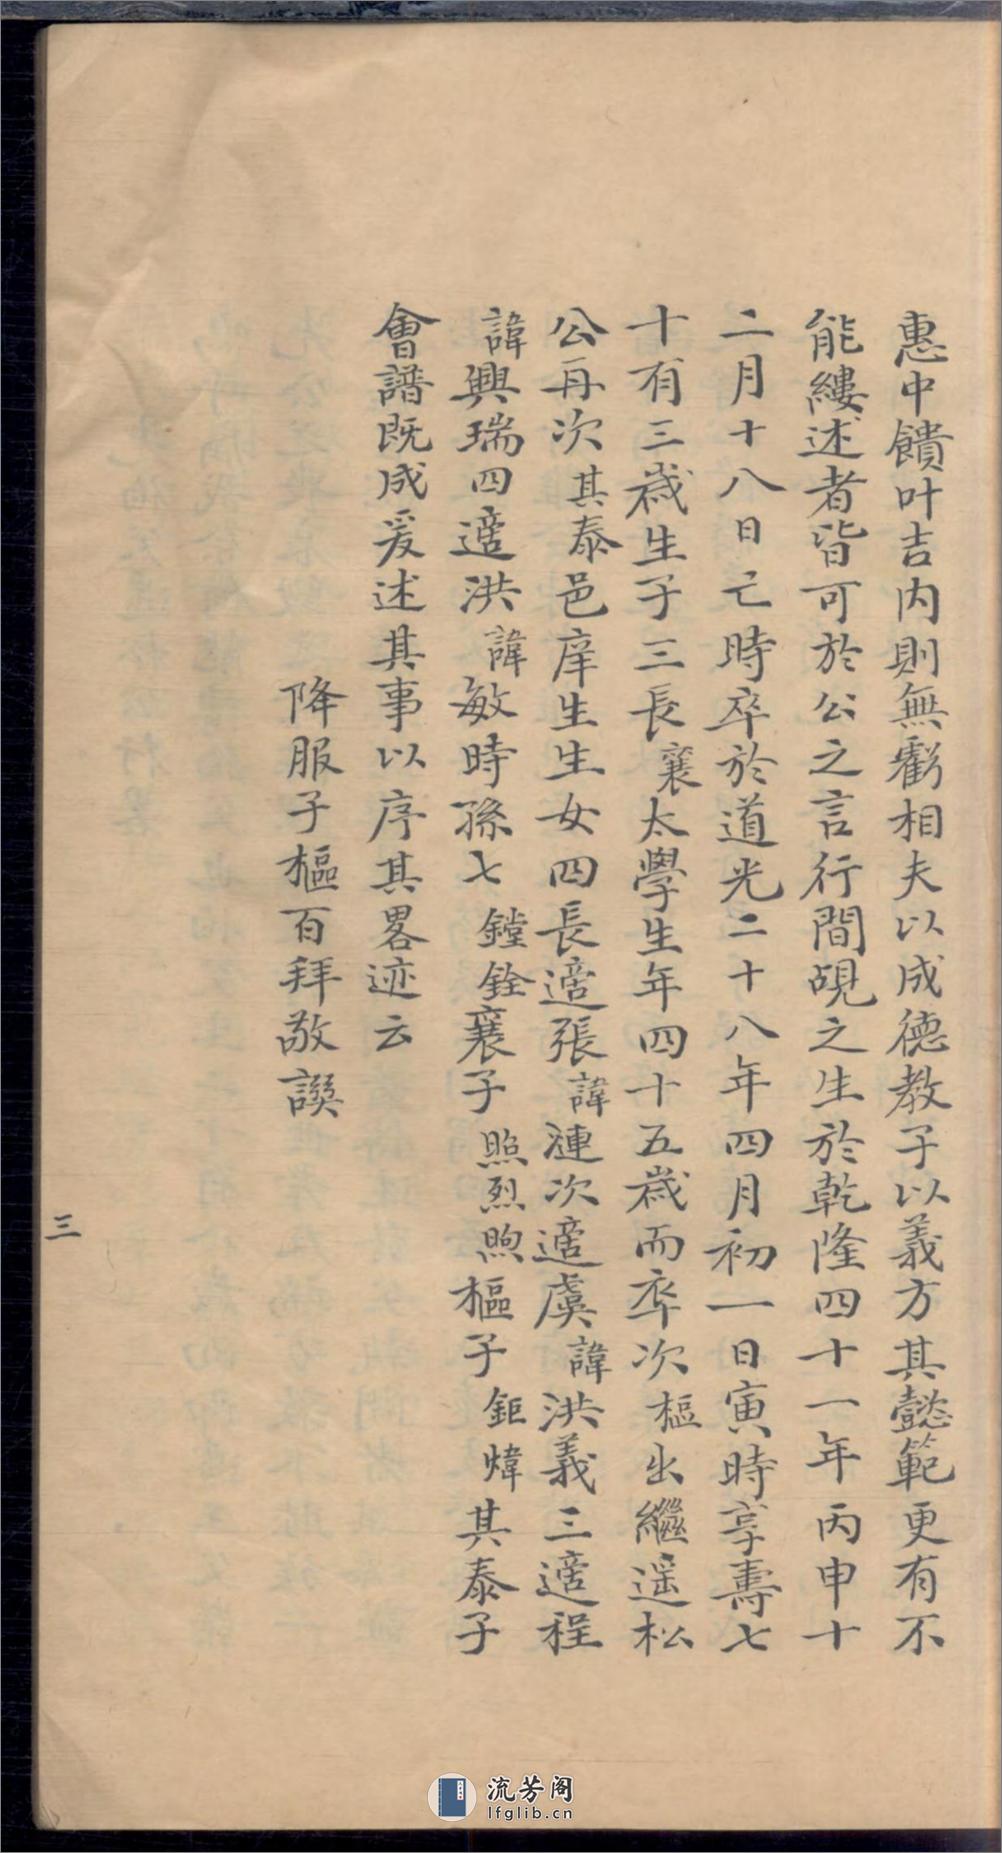 惠中饋叶吉內則無虧相夫以成德教子以義方其懿範更有不
能縷述者皆可於公之言行間覘之生於乾隆四十一年丙申十
二月十八日亡時卒於道光二十八年四月初一日寅時享壽七
十有三歲生子三長襄太學生年四十五歲而卒次樞出繼遥松
公再次其泰邑庠生生女四長適張諱漣次適虞諱洪義三適程
諱興瑞四適洪諱敏時孫七鏜銓襄子照烈煦樞子鉅煒其泰子
會譜既成爰述其事以序其畧迹云
降服子樞百拜敬譔
三
流芳阁
lfglib.cn